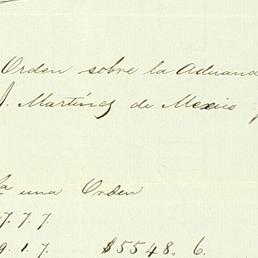 Orden sobre la Aduana
J. Martínez de Mexico
La una Orden
7. 7. 7.
9. 1. 7. $5548. 6.